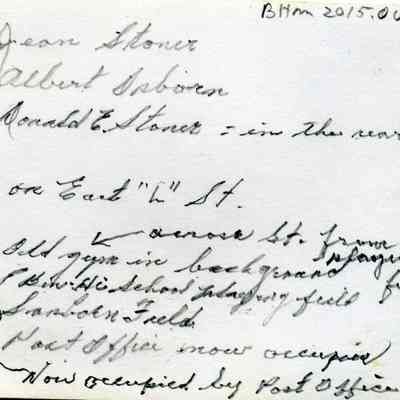 BHm 2015.0
Jean Stoner
Albert Osborn
Donald E. Stoner = in the rear
on East "L" St.
across St. from
Old gym in background playing
(Ben. Hi School playing field
Sanborn Field
Post Office now occupied
Now occupied by Post Office